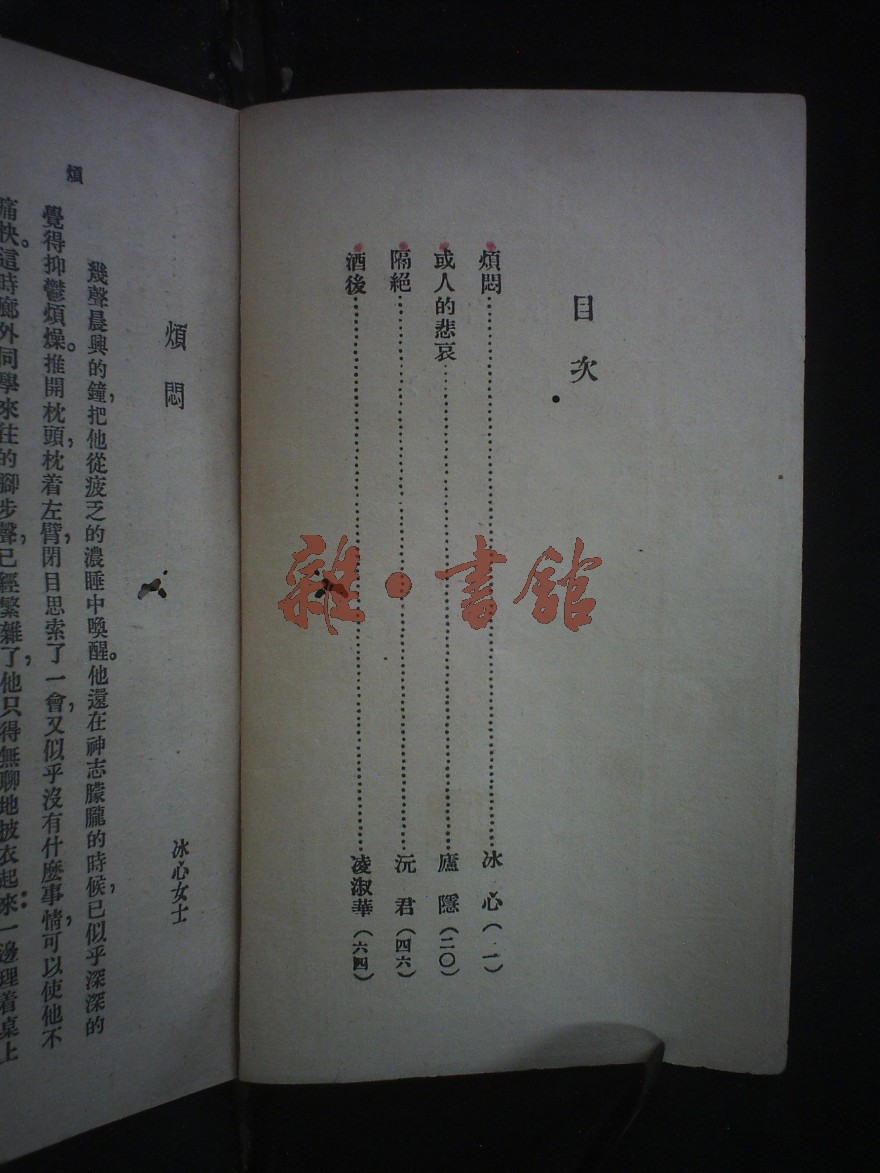 目次
煩悶……冰心(一)
或人的悲哀……廬隱(二〇)
隔絕……沅君(四六)
酒後……凌淑華(六四)
雜·書館
煩
煩悶
冰心女士
幾聲晨興的鐘,把他從疲乏的濃睡中喚醒。他還在神志朦朧的時候,已似乎深深的
覺得抑鬱煩燥。推開枕頭,枕着左臂,閉目思索了一會,又似乎沒有什麽事情,可以使他不
痛快。這時廊外同學來往的腳步聲,已經繁雜了,他只得無聊地披衣起來,一邊理着桌上